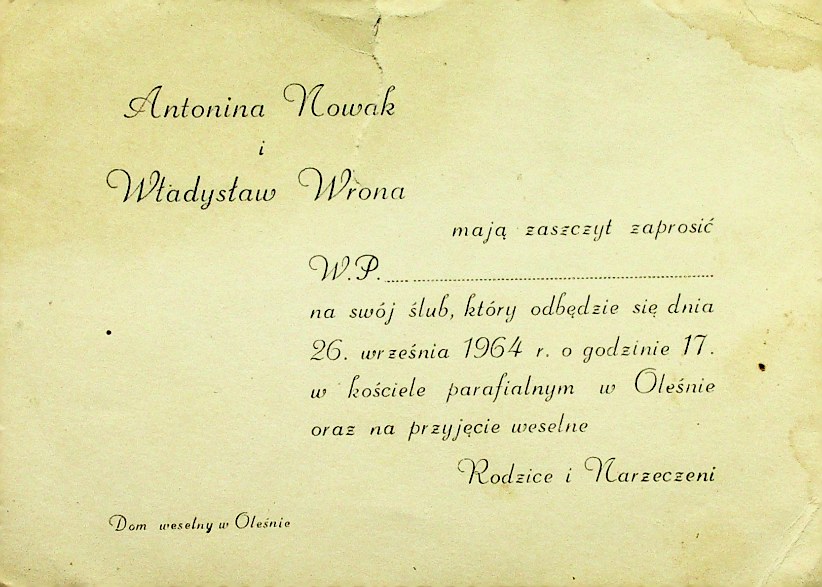 Antonina Nowak
i
Władysław Wrona
mają zaszczyt zaprosić
W.P.
na swój ślub, który odbędzie się dnia
26. września 1964 r. o godzinie 17.
w kościele parafialnym w Oleśnie
oraz na przyjęcie weselne
Rodzice i Narzeczeni
Dom weselny w Oleśnie